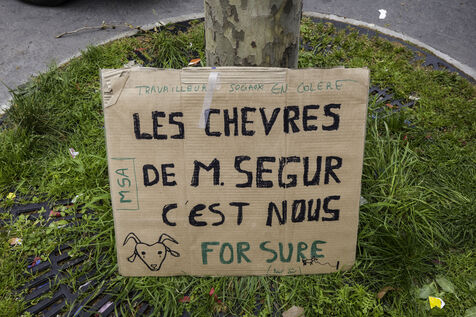 TRAVAILLEUR SOCIAUX EN COLÈRE
LES CHEVRES
DE M. SEGUR
C'EST NOUS
FOR SURE
MSA